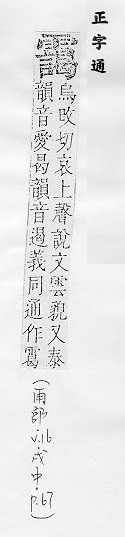 正字通
靄
烏改切哀上聲說文雲貌又泰
韻音愛曷韻音遏義同通作
(雨部 v.16·戌中·p.67)